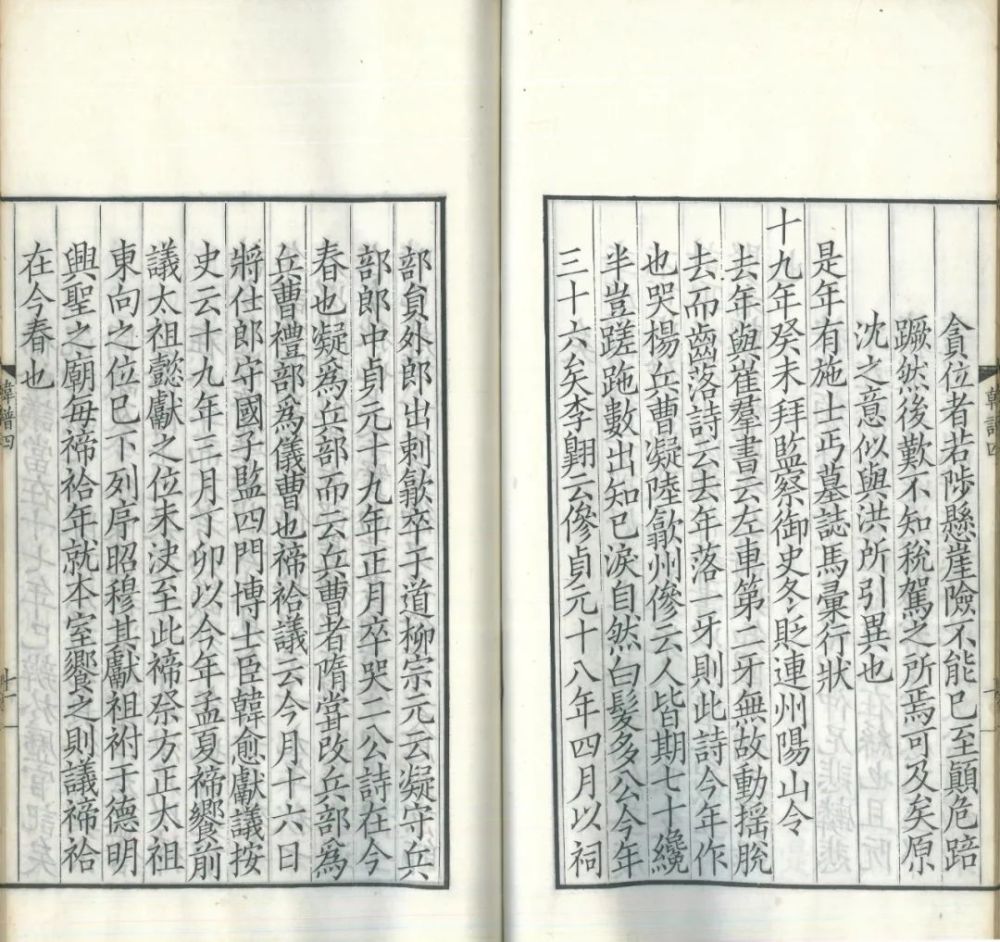 貪位者若陟懸崖險不能已至顚危踣
蹶然後歎不知稅駕之所焉可及矣原
沈之意似與洪所引異也
是年有施士丐墓誌馬彙行狀
十九年癸未拜監察御史冬貶連州陽山令
去年與崔羣書云左車第二牙無故動揺脫
去而齒落詩云去年落一牙則此詩今年作
也哭楊兵曹凝陸歙州傪云人皆期七十纔
半豈蹉跎數出知已淚自然白髮多公今年
三十六矣李翺云傪貞元十八年四月以祠
部員外郎出刺歙卒于道柳宗元云凝守兵
部郎中貞元十九年正月卒哭二公詩在今
春也凝爲兵部而云兵曹者隋嘗改兵部爲
兵曹禮部爲儀曹也禘祫議云今月十六日
將仕郎守國子監四門博士臣韓愈獻議按
史云十九年三月丁卯以今年孟夏禘饗前
議太祖懿獻之位未決至此禘祭方正太祖
東向之位已下列序昭穆其獻祖祔于德明
興聖之廟每禘祫年就本室饗之則議禘祫
在今春也
韓譜四